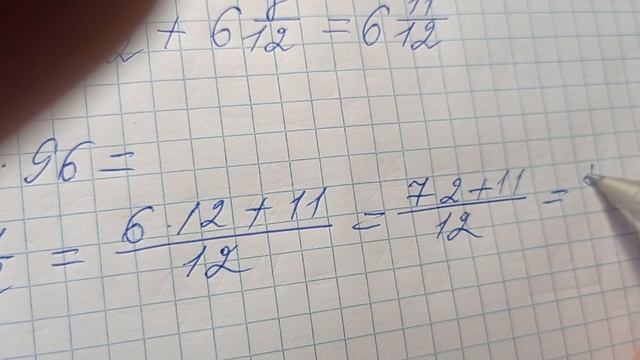 2 + 6 8/12 = 6 11/12
· 96 =
= (6 · 12 + 11)/12 = (72 + 11)/12 =